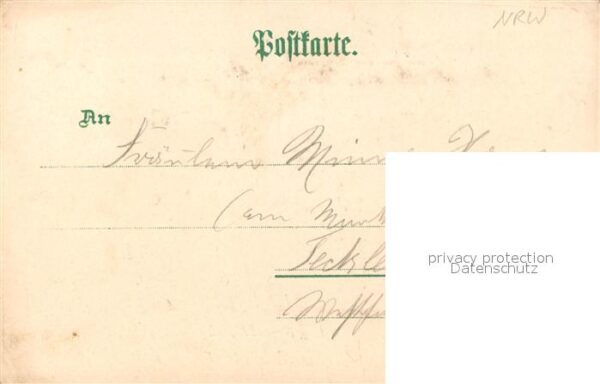 NRW
Postkarte.
An
Fräulein Minna
(am Markt
Teckle
Westf
privacy protection
Datenschutz